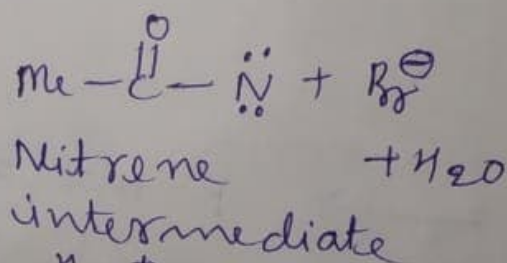 O
Me - C - N̈ + Br⊖
Nitrene + H2O
intermediate